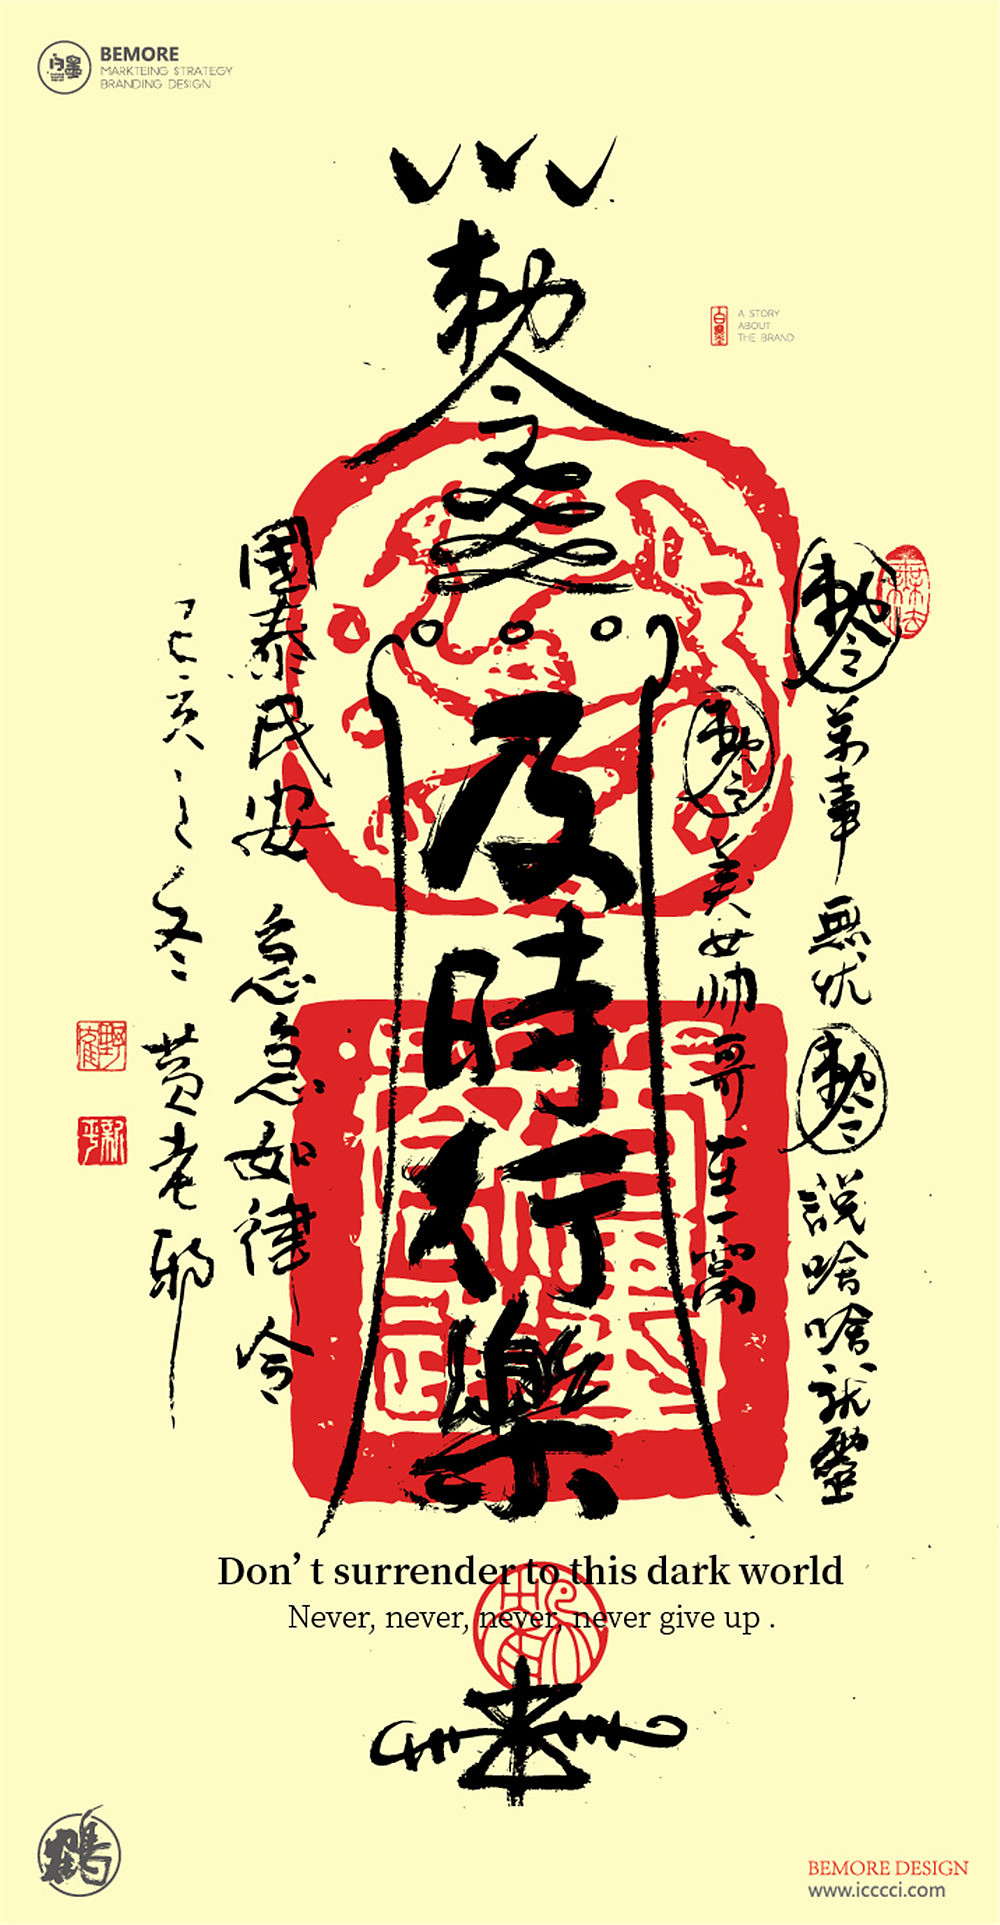 BEMORE
MARKTEING STRATEGY
BRANDING DESIGN
A STORY
ABOUT
THE BRAND
白墨
敕令
及時行樂
敕令萬事無忧敕令說啥啥就靈
敕令美女帅哥在一窩
國泰民安 急急如律令
己亥之冬 黄老邪
Don’t surrender to this dark world
Never, never, never, never give up .
鶴
BEMORE DESIGN
www.icccci.com